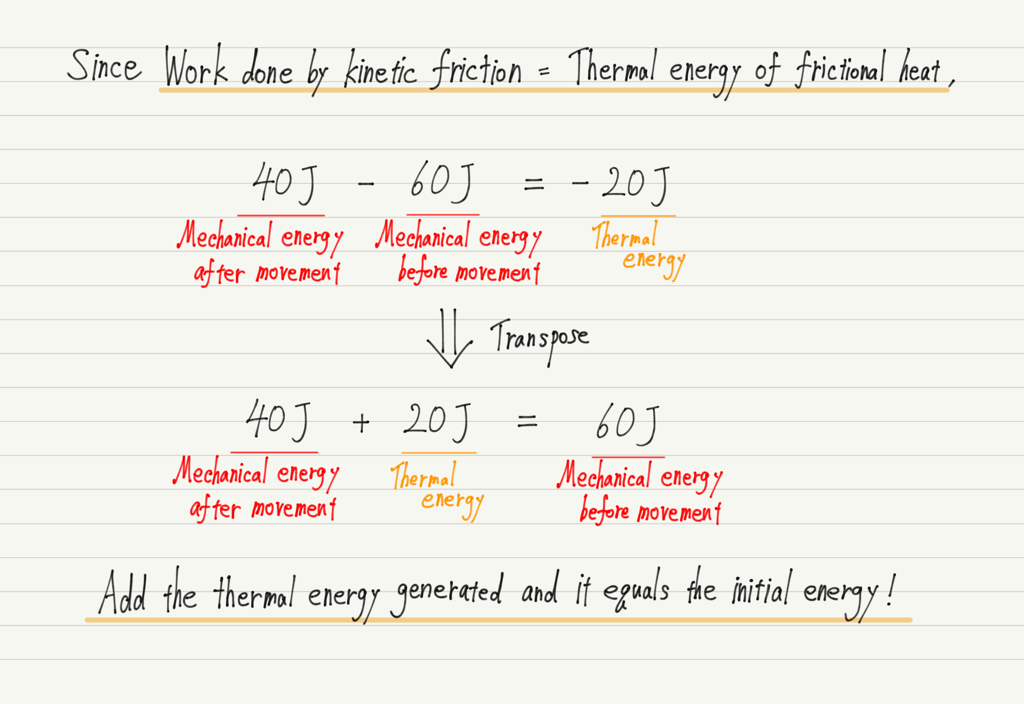 Since Work done by kinetic friction = Thermal energy of frictional heat,
40J - 60J = - 20J
Mechanical energy after movement
Mechanical energy before movement
Thermal energy
⇓ Transpose
40J + 20J = 60J
Mechanical energy after movement
Thermal energy
Mechanical energy before movement
Add the thermal energy generated and it equals the initial energy!